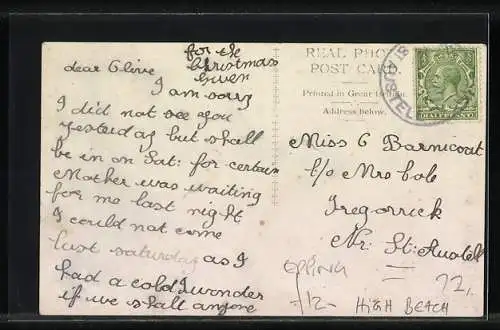 for the
Christmas
dear Olive
I am sorry
I did not see you
yesterday but shall
be in on Sat: for certain
Mother was waiting
for me last night
I could not come
last saturday as I
had a cold I wonder
if we shall anyone
REAL PHOTO
POST CARD.
Printed in Great Britain.
Address below.
Miss O Barnicoat
c/o Mrs Cole
Tregorrick
Nr. St. Austell
EPPING
-/12-
HIGH BEACH
HALFPENNY